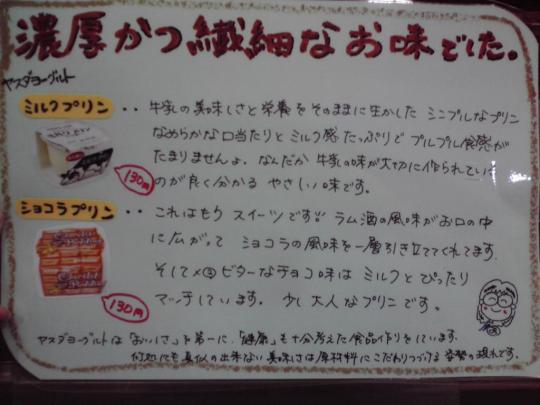 濃厚かつ繊細なお味でした。
ヤスダヨーグルト
ミルクプリン ・・牛乳の美味しさと栄養をそのままに生かした シンプルなプリン
なめらかな口当たりとミルク感たっぷりでプルプル食感が
たまりませんよ。なんだか牛乳の味が大切に作られている
のが良く分かる やさしい味です。
130円
ショコラプリン ・・これはもう スイーツです!! ラム酒の風味がお口の中
に広がって ショコラの風味を一層引き立ててくれてます。
そして ビターなチョコ味は ミルクとぴったり
マッチしています。少し大人なプリンです。
130円
ヤスダヨーグルトは「おいしさ」を第一に、「健康」も十分考えた食品作りをしています。
何処にも真似の出来ない美味しさは原材料にこだわりつづける姿勢の現れです。